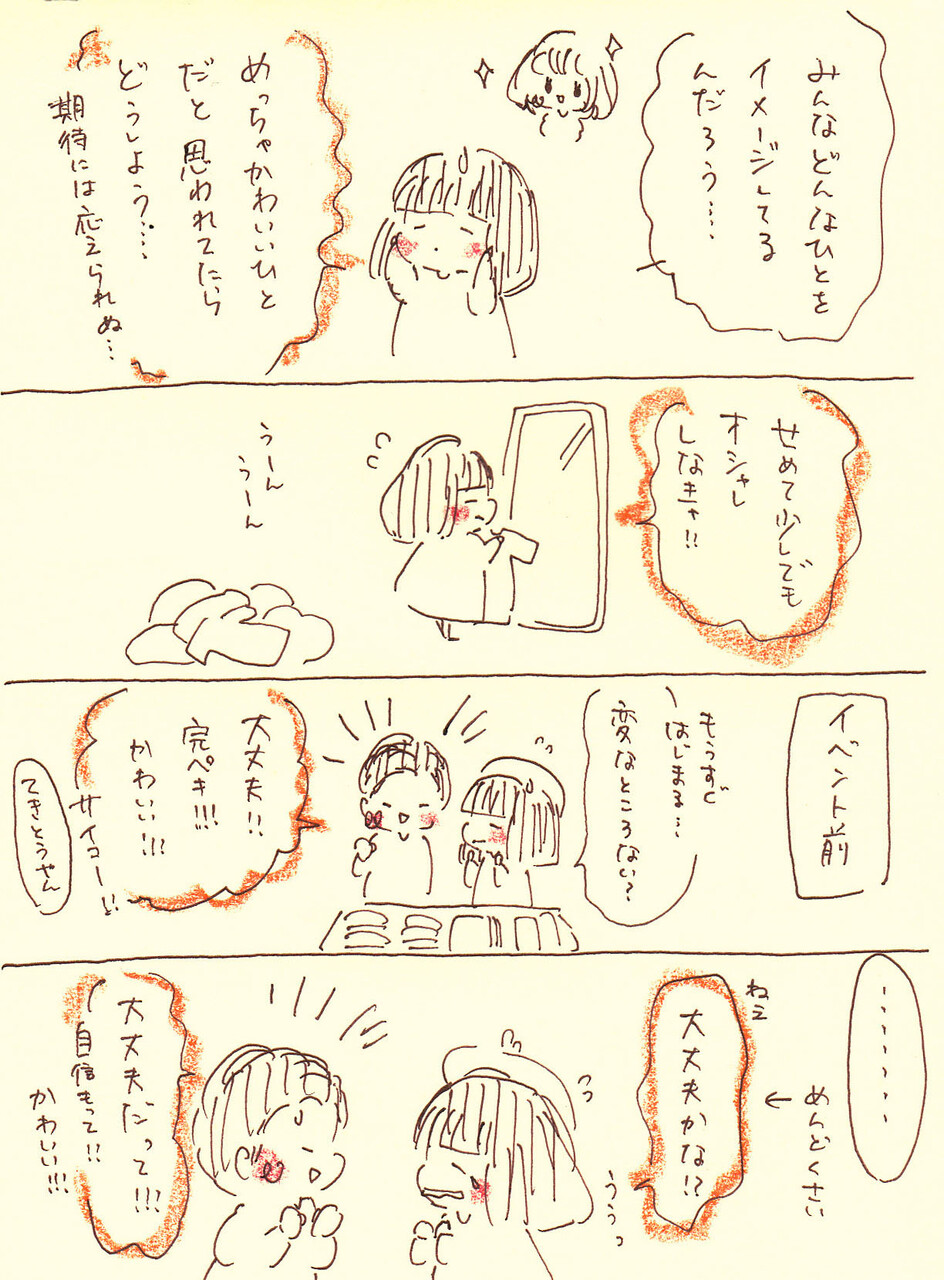 みんなどんなひとを
イメージしてる
んだろう……
めっちゃかわいいひと
だと思われてたら
どうしよう……
期待には応えられぬ…
せめて少しでも
オシャレ
しなきゃ!!
うーん
うーん
イベント前
もうすぐ
はじまる…
変なところない?
大丈夫!!
完ペキ!!!
かわいい!!!
サイコー!!
てきとうやん
………
ねえ
大丈夫かな!?
めんどくさい
ううっ
大丈夫だって!!!
自信もって!!
かわいい!!!